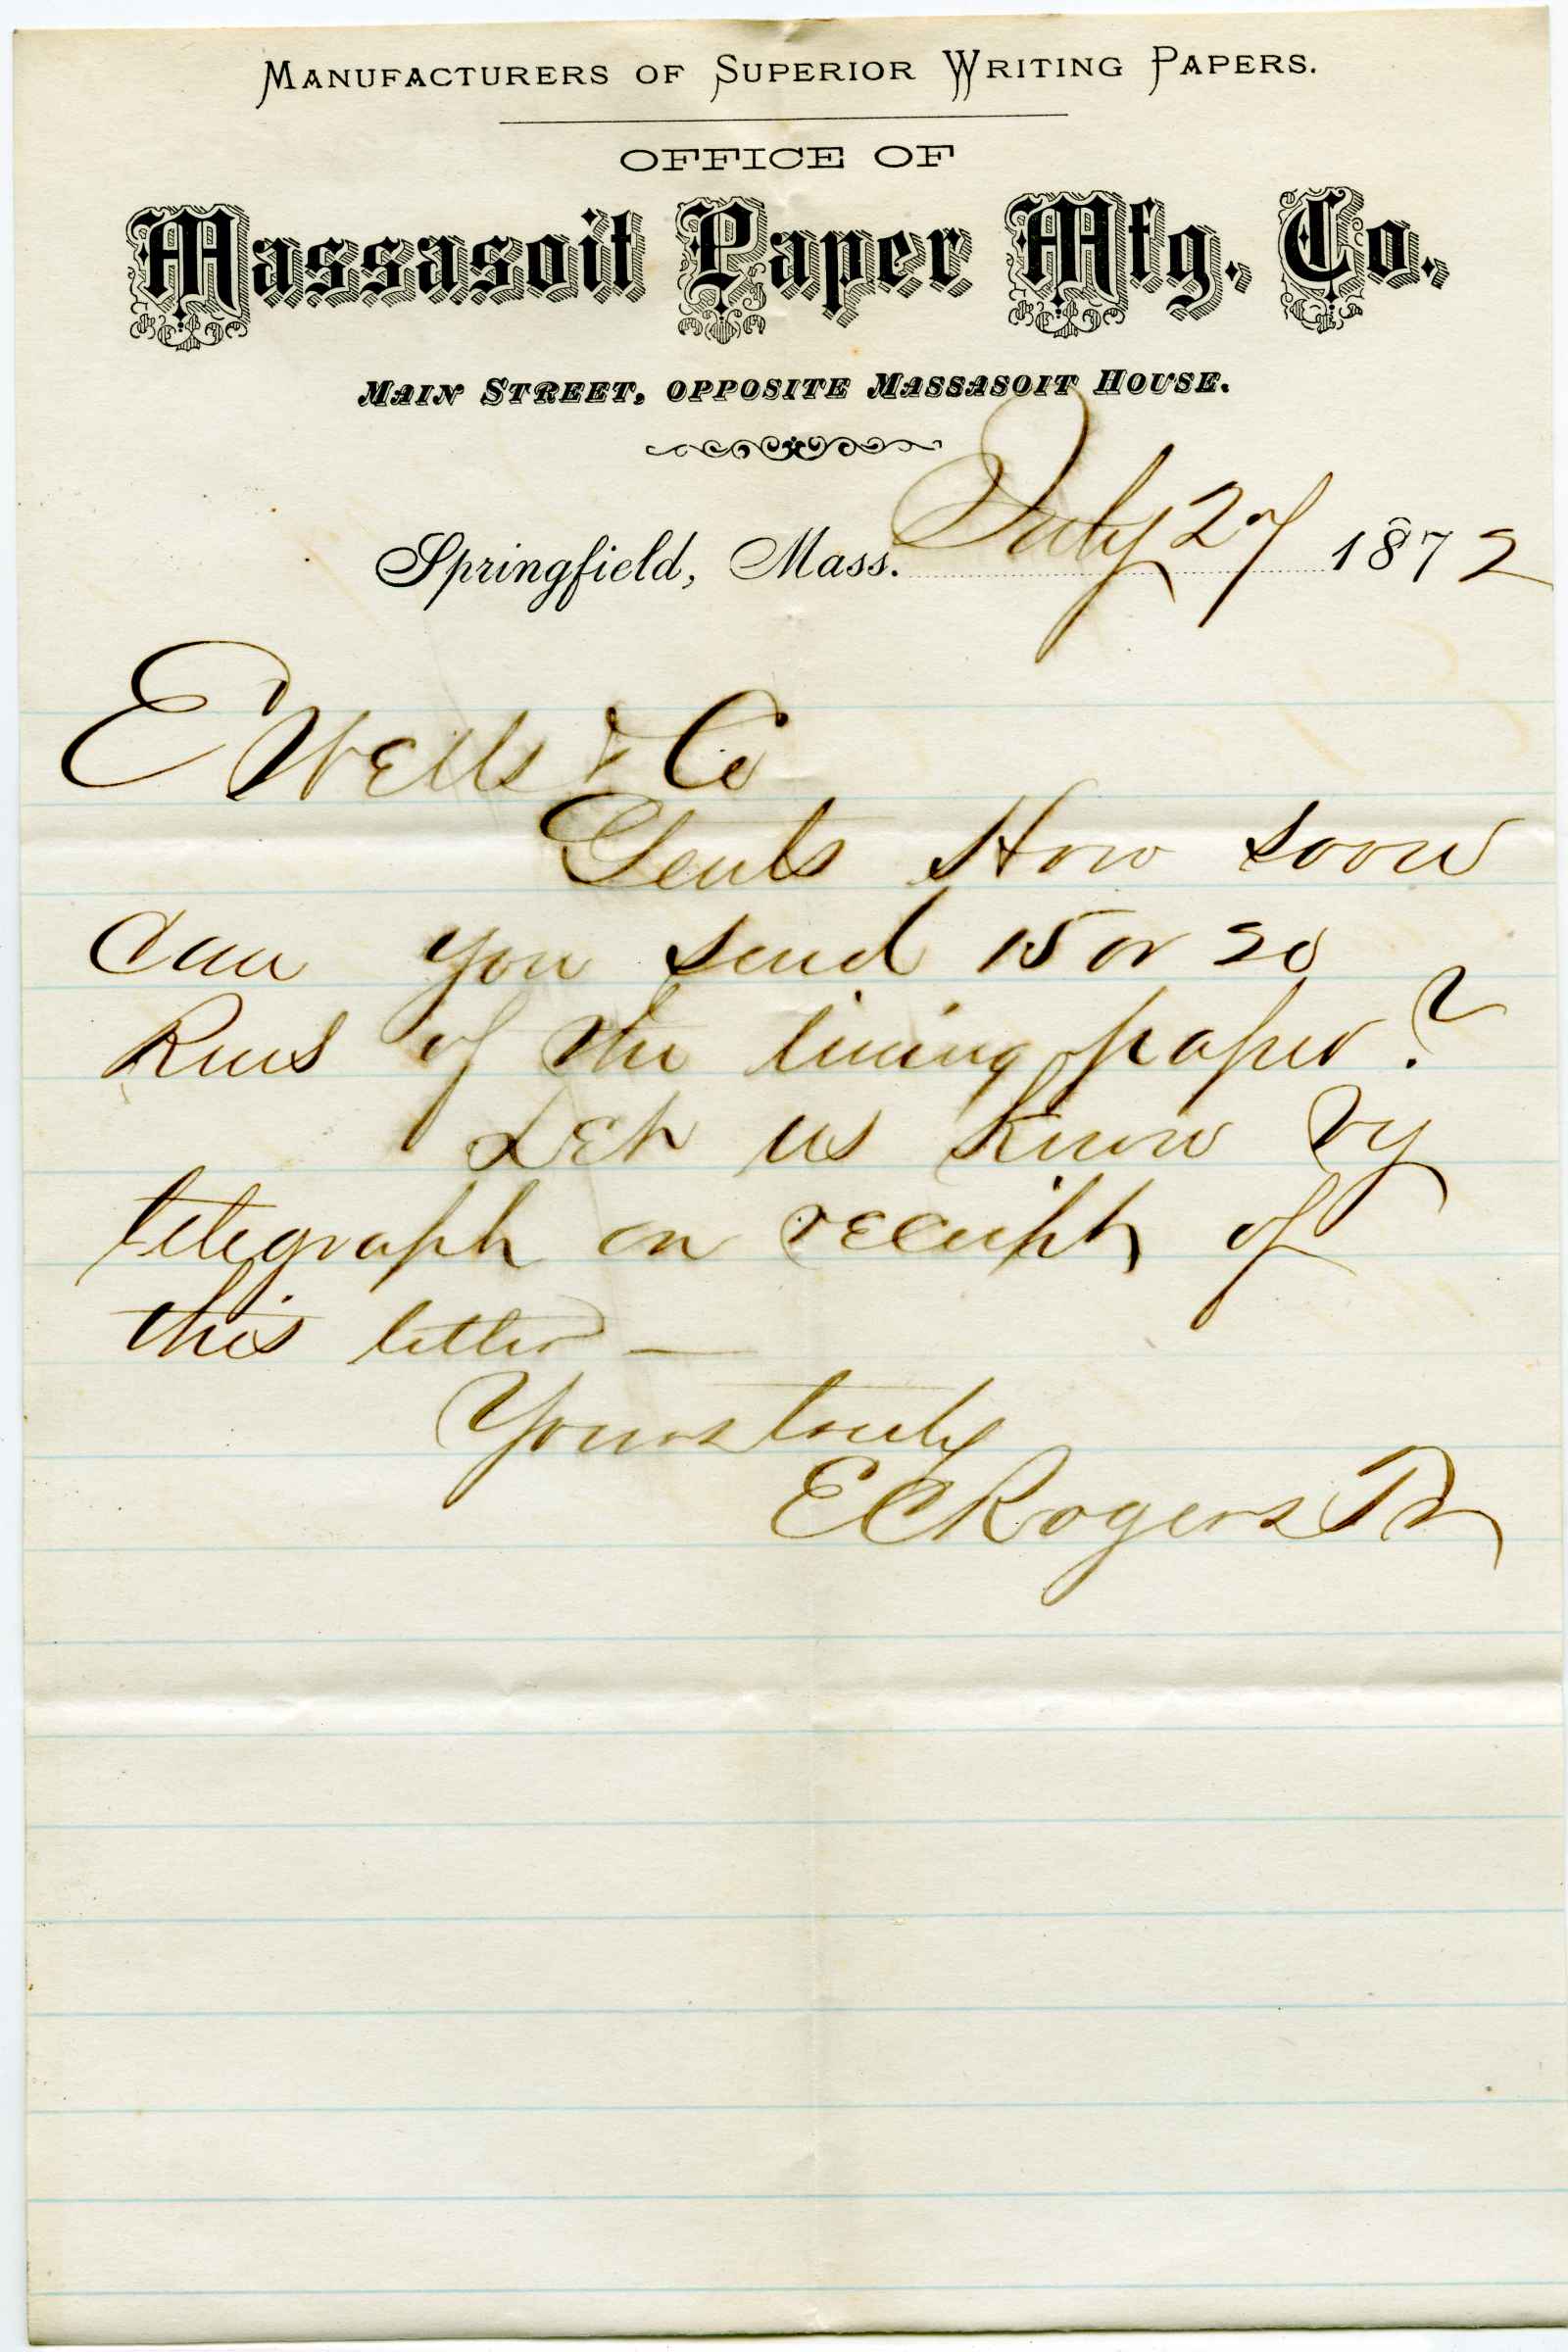 MANUFACTURERS OF SUPERIOR WRITING PAPERS.
OFFICE OF
Massasoit Paper Mfg. Co.,
MAIN STREET, OPPOSITE MASSASOIT HOUSE.
Springfield, Mass. July 27 1872
E Wells & Co
Gents How soon
can you send 15 or 20
Rms of the lining paper?
Let us know by
telegraph on receipt of
this letter —
Yours truly
E C Rogers Tr